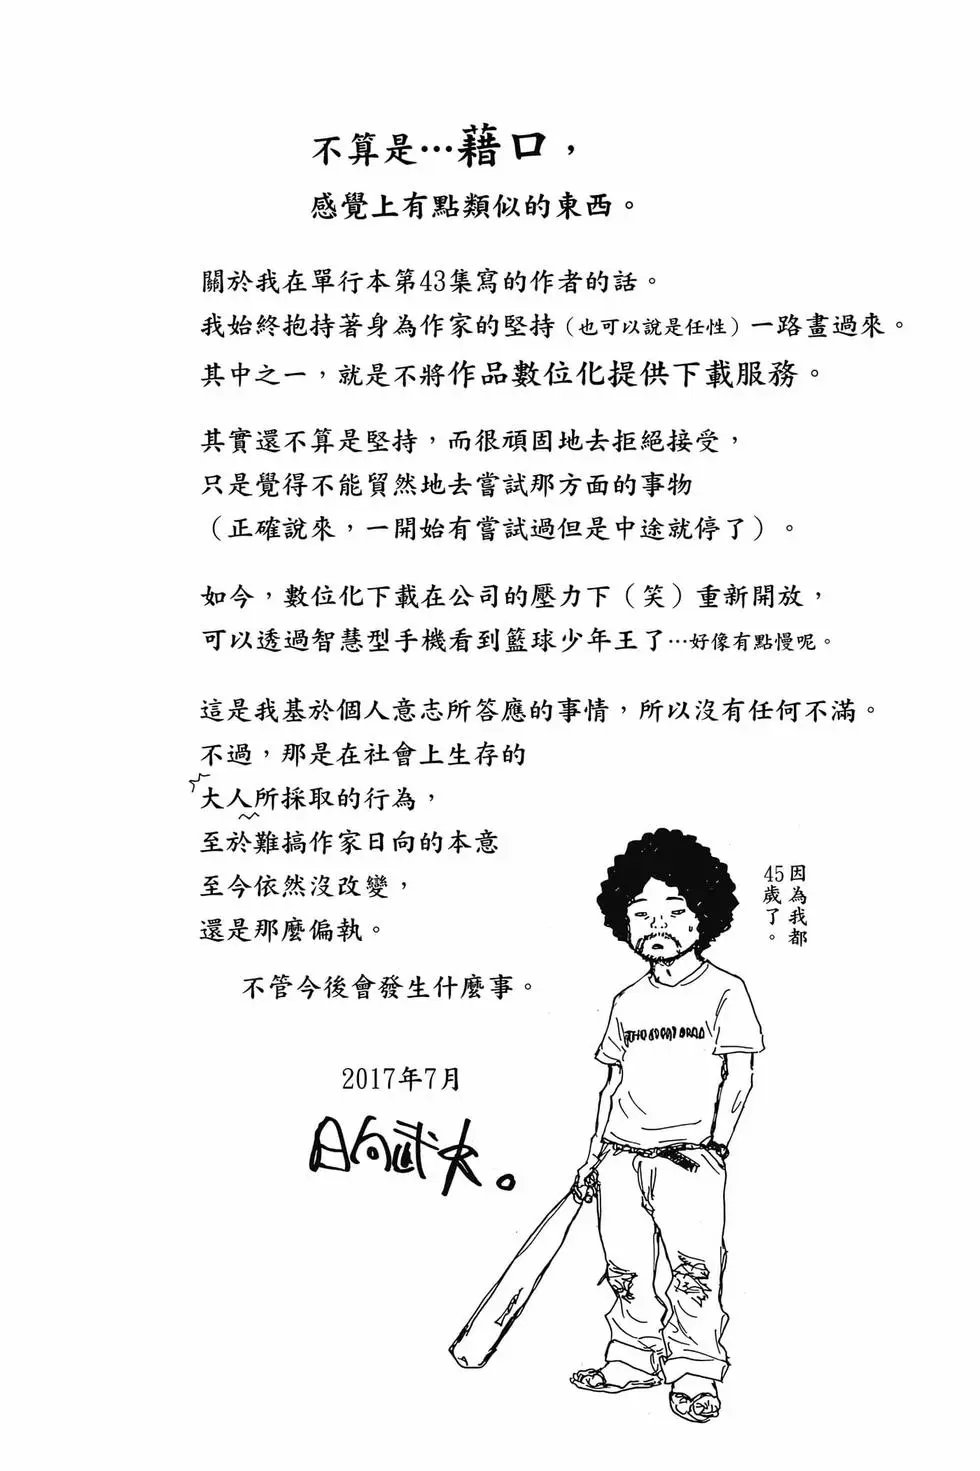 不算是…藉口，
感覺上有點類似的東西。
關於我在單行本第43集寫的作者的話。
我始終抱持著身為作家的堅持（也可以說是任性）一路畫過來。
其中之一，就是不將作品數位化提供下載服務。
其實還不算是堅持，而很頑固地去拒絕接受，
只是覺得不能貿然地去嘗試那方面的事物
（正確說來，一開始有嘗試過但是中途就停了）。
如今，數位化下載在公司的壓力下（笑）重新開放，
可以透過智慧型手機看到籃球少年王了…好像有點慢呢。
這是我基於個人意志所答應的事情，所以沒有任何不滿。
不過，那是在社會上生存的
大人所採取的行為，
至於難搞作家日向的本意
至今依然沒改變，
還是那麼偏執。
不管今後會發生什麼事。
因為我都
45歲了。
2017年7月
日向武史。